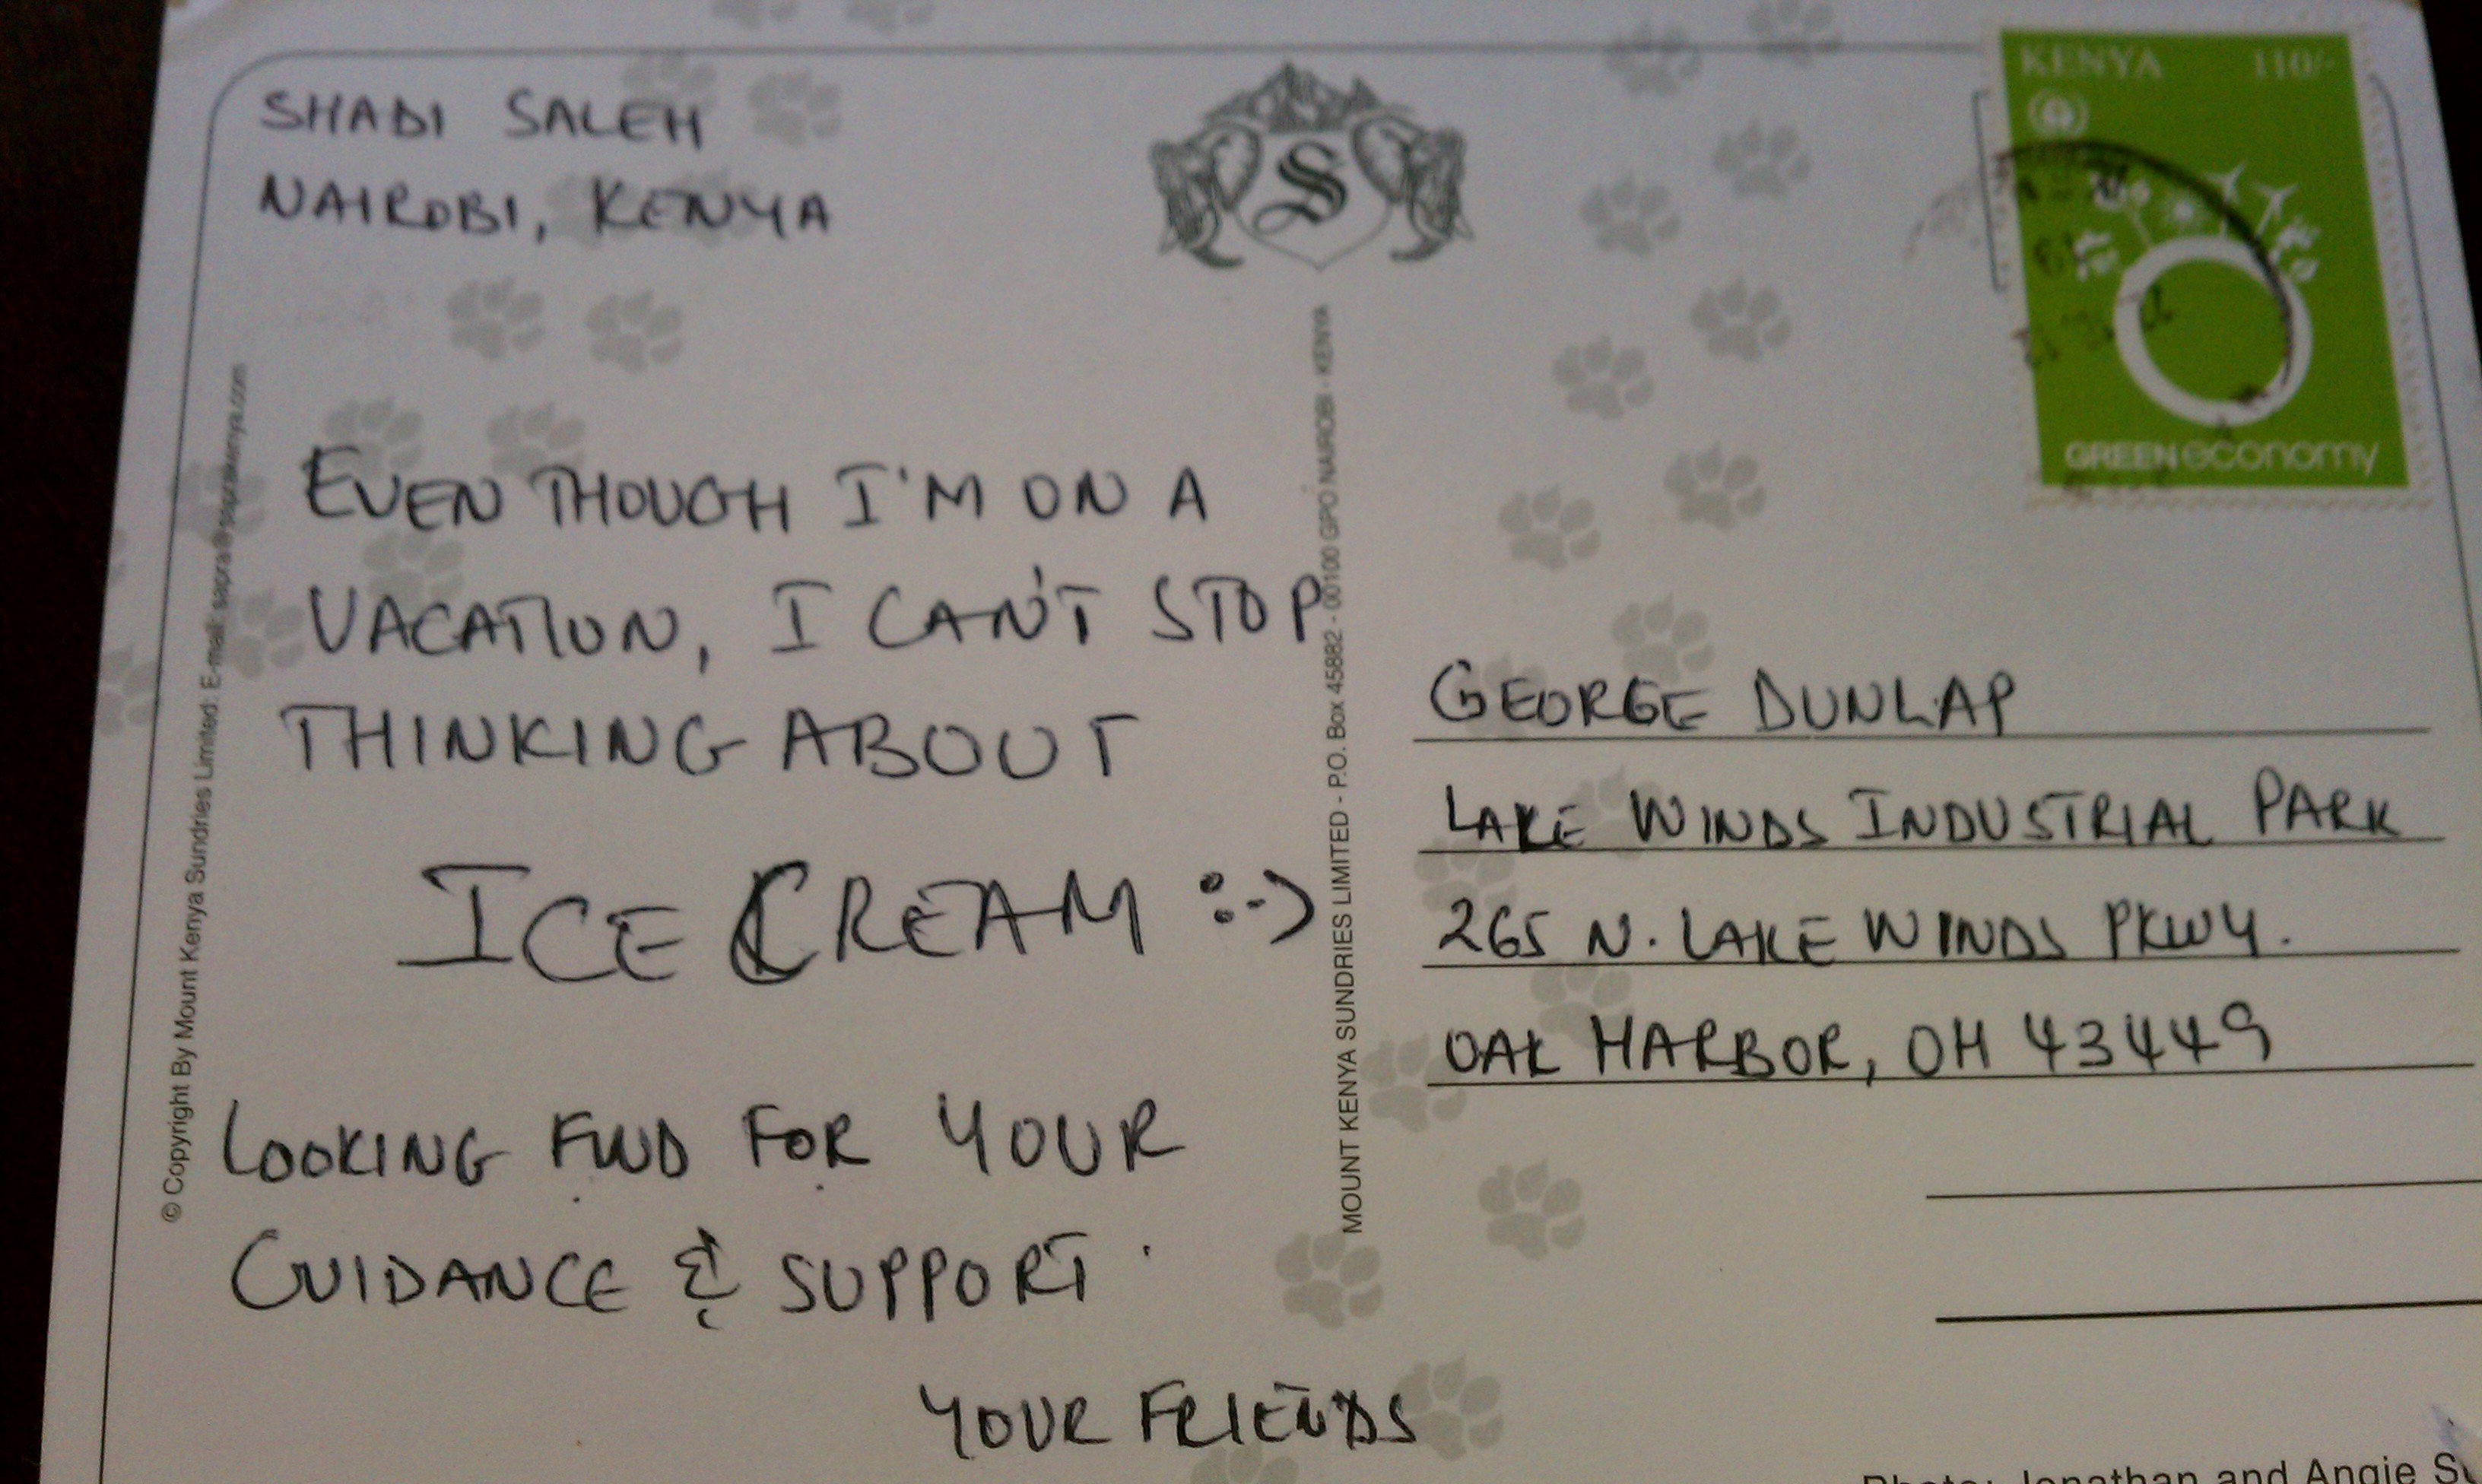 SHADI SALEH
NAIROBI, KENYA
EVEN THOUGH I'M ON A
VACATION, I CAN'T STOP
THINKING ABOUT
ICE CREAM :-)
LOOKING FWD FOR YOUR
GUIDANCE & SUPPORT.
YOUR FRIENDS
© Copyright By Mount Kenya Sundries Limited: E-mail: sapra@saprakenya.com
S
MOUNT KENYA SUNDRIES LIMITED - P.O. Box 45882 - 00100 GPO NAIROBI - KENYA
KENYA 110/-
GREENeconomy
GEORGE DUNLAP
LAKE WINDS INDUSTRIAL PARK
265 N. LAKE WINDS PKWY.
OAK HARBOR, OH 43449
Photo: Jonathan and Angie